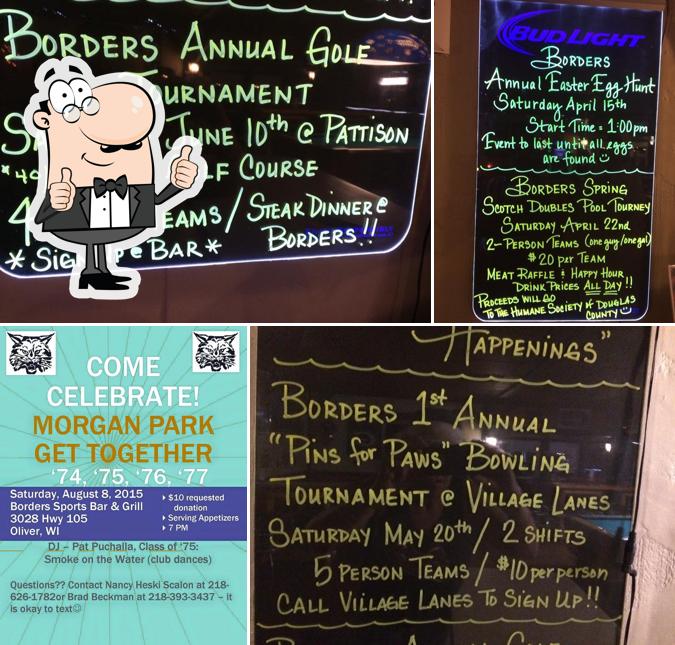 BORDERS ANNUAL GOLF
TOURNAMENT
JUNE 10th @ PATTISON
COURSE
TEAMS / STEAK DINNER @
BORDERS!!
@ BAR *
BUD LIGHT
BORDERS
Annual Easter Egg Hunt
Saturday April 15th
Start Time = 1:00pm
Event to last until all eggs
are found ☺
BORDERS SPRING
SCOTCH DOUBLES POOL TOURNEY
SATURDAY APRIL 22nd
2-PERSON TEAMS (one guy/one gal)
$20 PER TEAM
MEAT RAFFLE & HAPPY HOUR
DRINK PRICES ALL DAY!!
PROCEEDS WILL GO
TO THE HUMANE SOCIETY OF DOUGLAS
COUNTY ☺
COME
CELEBRATE!
MORGAN PARK
GET TOGETHER
'74, '75, '76, '77
Saturday, August 8, 2015
Borders Sports Bar & Grill
3028 Hwy 105
Oliver, WI
$10 requested
donation
Serving Appetizers
7 PM
DJ – Pat Puchalla, Class of '75:
Smoke on the Water (club dances)
Questions?? Contact Nancy Heski Scalon at 218-
626-1782or Brad Beckman at 218-393-3437 – it
is okay to text☺
HAPPENINGS"
BORDERS 1st ANNUAL
"PINS for PAWS" BOWLING
TOURNAMENT @ VILLAGE LANES
SATURDAY MAY 20th / 2 SHIFTS
5 PERSON TEAMS / $10 per person
CALL VILLAGE LANES TO SIGN UP!!